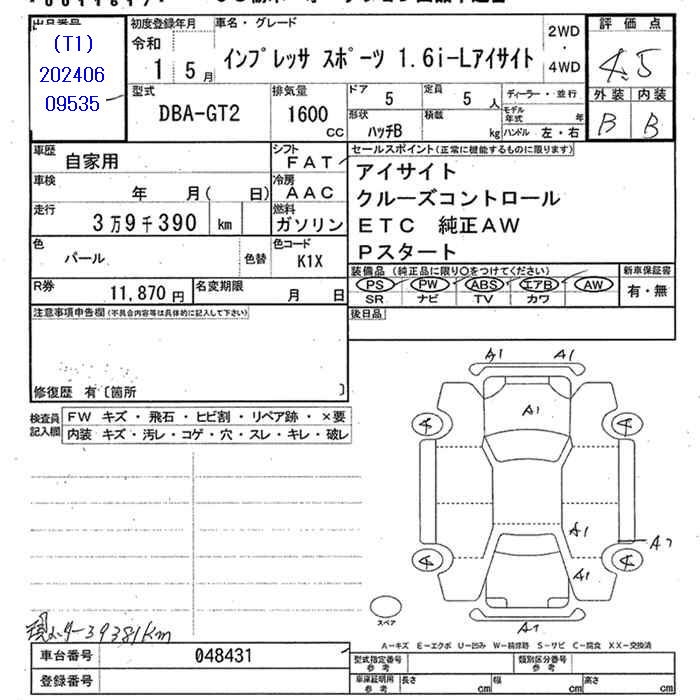 出品番号 初度登録年月 車名・グレード 評価点
(T1)
202406
09535
令和
1 5月
インプレッサ スポーツ 1.6i-Lアイサイト
2WD
・
4WD
4.5
外装 内装
B B
型式 排気量 ドア 定員 ディーラー・並行
DBA-GT2 1600 CC 5 5 人
モデル年式 年
形状 積載
ハッチB kg ハンドル 左・右
車歴 自家用 シフト FAT
車検 年 月( 日) 冷房 AAC
走行 3万9千390 km 燃料 ガソリン
色 パール 色替 色コード K1X
R券 11,870円 名変期限 月 日
セールスポイント(正常に機能するものに限ります)
アイサイト
クルーズコントロール
ETC 純正AW
Pスタート
装備品 (純正品に限り○をつけてください) 新車保証書
PS PW ABS エアB AW 有・無
SR ナビ TV カワ
後日品
注意事項申告欄(不具合内容等は具体的に記入して下さい)
修復歴 有〔箇所 〕
検査員記入欄
FW キズ・飛石・ヒビ割・リペア跡・×要
内装 キズ・汚レ・コゲ・穴・スレ・キレ・破レ
A1 A1
A1
4 4
A1
A2
4 4
A1
スペア
A1
現メーター39381km
A-キズ E-エクボ U-凹み W-補修跡 S-サビ C-腐食 XX-交換済
車台番号 048431
登録番号
型式指定番号 参考 類別区分番号 参考
車庫証明用 参考 長さ cm 幅 cm 高さ cm